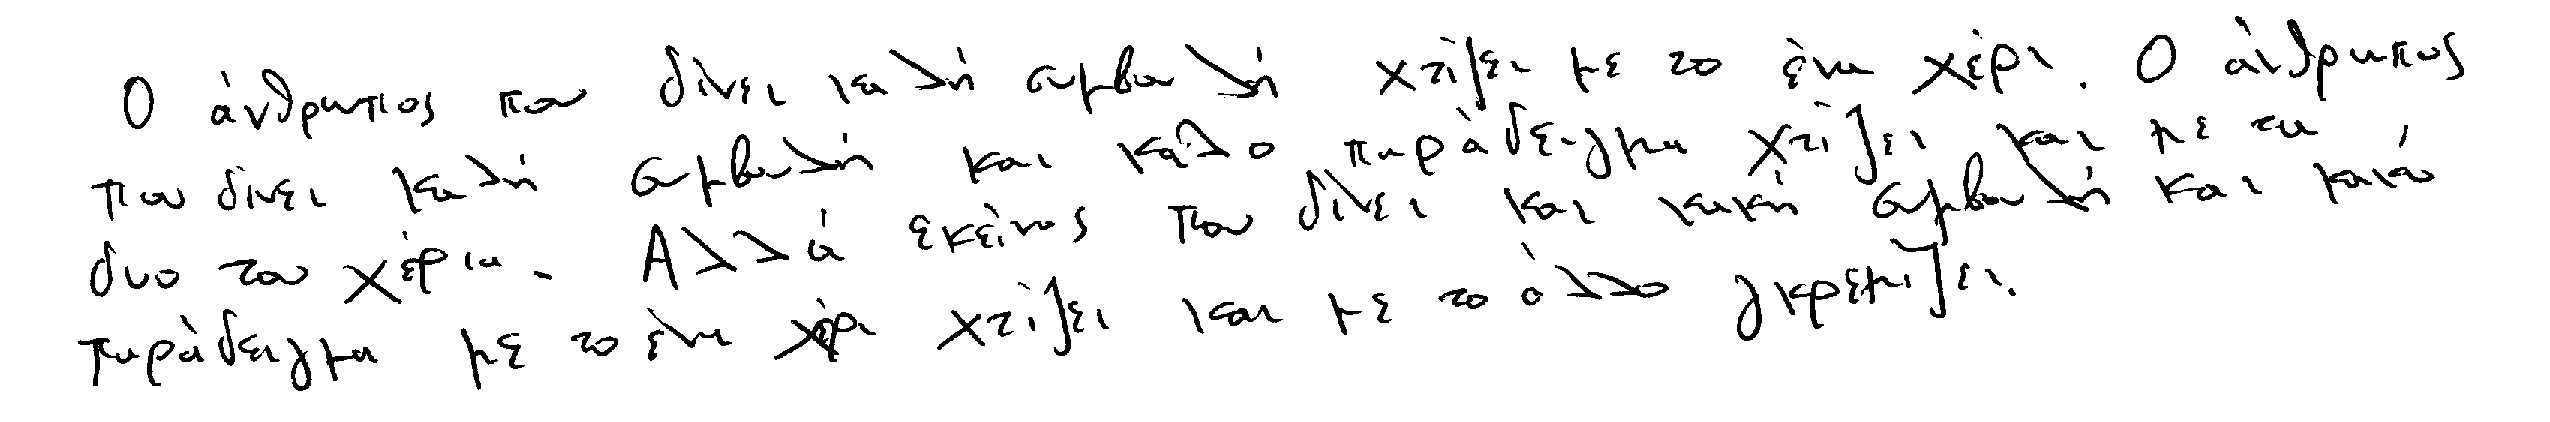 Ο άνθρωπος που δίνει καλή συμβουλή χτίζει με το ένα χέρι. Ο άνθρωπος
που δίνει καλή συμβουλή και καλό παράδειγμα χτίζει και με τα
δυο του χέρια. Αλλά εκείνος που δίνει και κακή συμβουλή και κακό
παράδειγμα με το ένα χέρι χτίζει και με το άλλο γκρεμίζει.